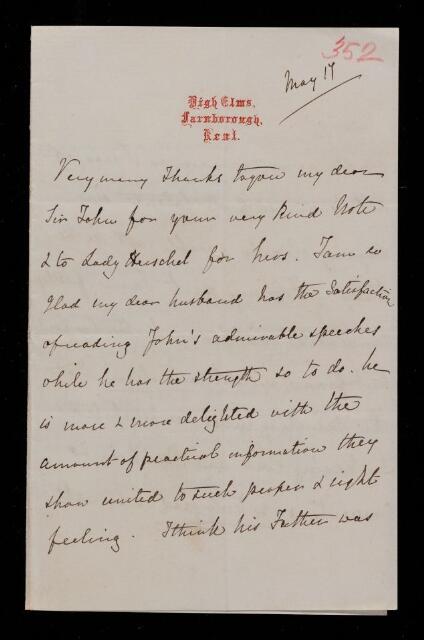 352
May 17
High Elms,
Farnborough,
Kent.
Very many thanks to you my dear
Sir John for your very kind Note
& to Lady Herschel for hers. I am so
glad my dear husband has the Satisfaction
of reading John's admirable speeches
while he has the strength so to do. he
is more & more delighted with the
amount of practical information they
show united to such proper & right
feeling. I think his Father was